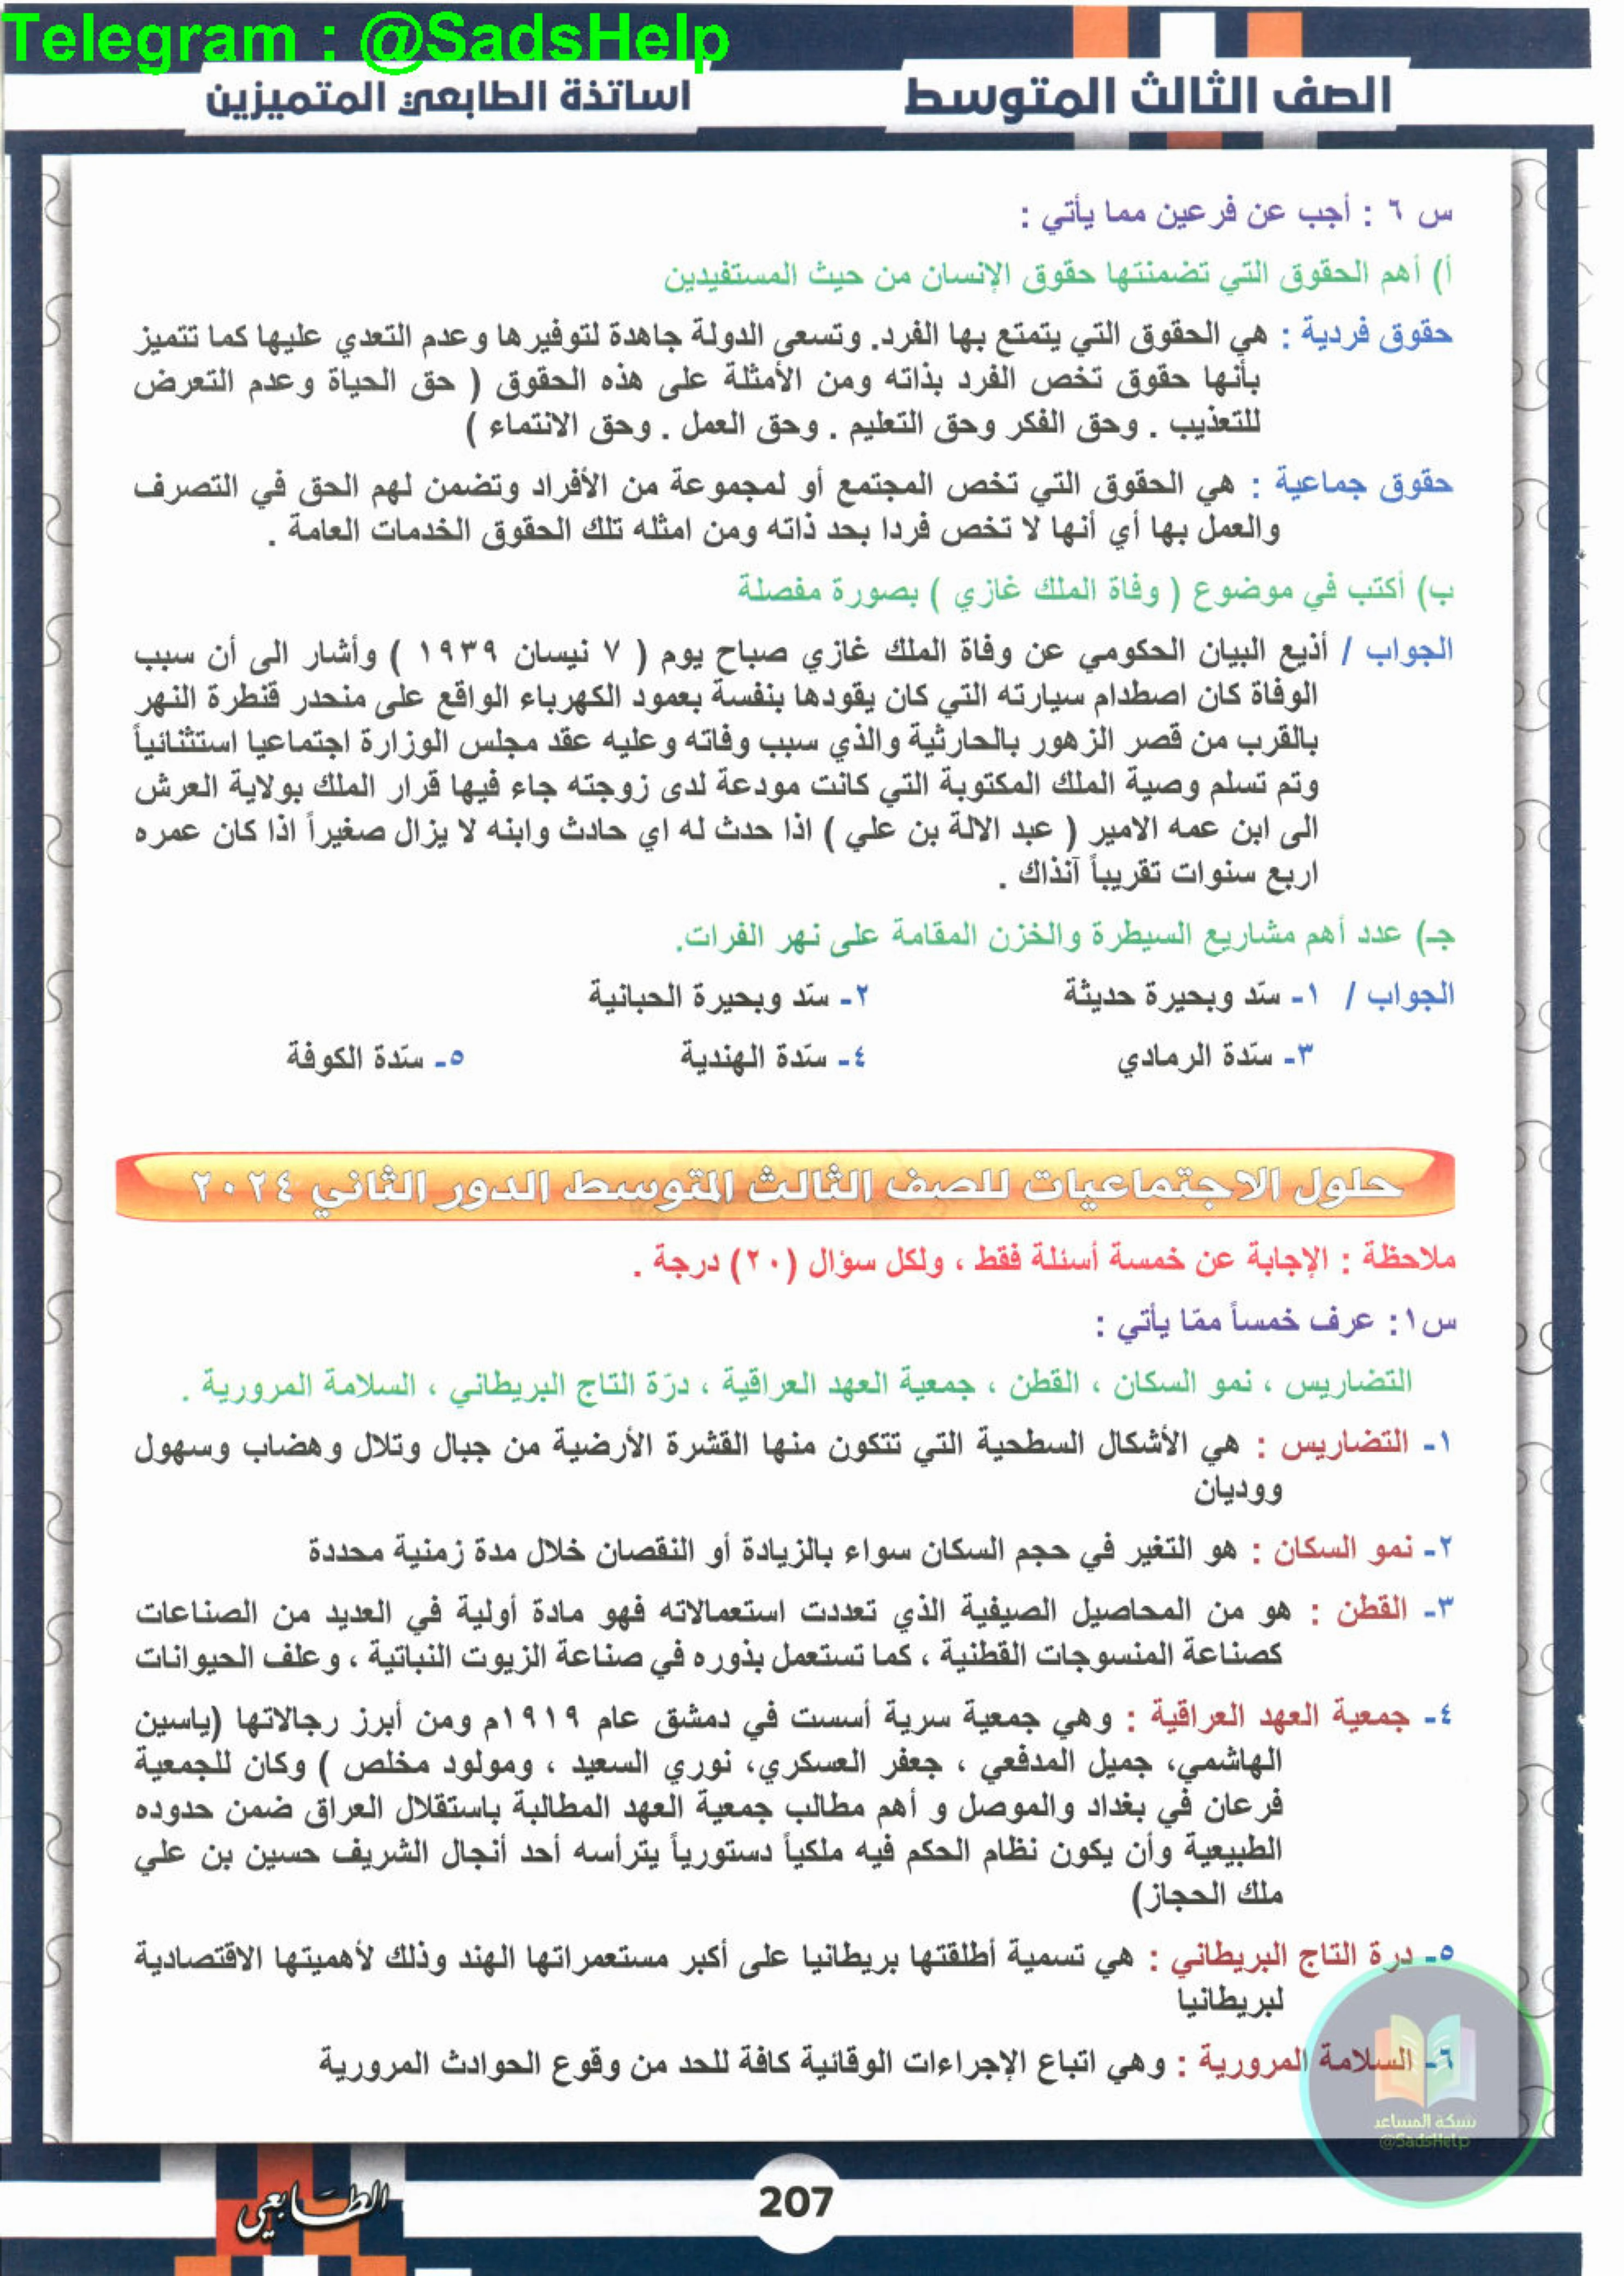 Telegram : @SadsHelp
الصف الثالث المتوسط
اساتذة الطابعي المتميزين
س ٦ : أجب عن فرعين مما يأتي :
أ) أهم الحقوق التي تضمنتها حقوق الإنسان من حيث المستفيدين
حقوق فردية : هي الحقوق التي يتمتع بها الفرد. وتسعى الدولة جاهدة لتوفيرها وعدم التعدي عليها كما تتميز
بأنها حقوق تخص الفرد بذاته ومن الأمثلة على هذه الحقوق ( حق الحياة وعدم التعرض
للتعذيب . وحق الفكر وحق التعليم . وحق العمل . وحق الانتماء )
حقوق جماعية : هي الحقوق التي تخص المجتمع أو لمجموعة من الأفراد وتضمن لهم الحق في التصرف
والعمل بها أي أنها لا تخص فردا بحد ذاته ومن امثله تلك الحقوق الخدمات العامة .
ب) أكتب في موضوع ( وفاة الملك غازي ) بصورة مفصلة
الجواب / أذيع البيان الحكومي عن وفاة الملك غازي صباح يوم ( ٧ نيسان ١٩٣٩ ) وأشار الى أن سبب
الوفاة كان اصطدام سيارته التي كان يقودها بنفسة بعمود الكهرباء الواقع على منحدر قنطرة النهر
بالقرب من قصر الزهور بالحارثية والذي سبب وفاته وعليه عقد مجلس الوزارة اجتماعيا استثنائياً
وتم تسلم وصية الملك المكتوبة التي كانت مودعة لدى زوجته جاء فيها قرار الملك بولاية العرش
الى ابن عمه الامير ( عبد الالة بن علي ) اذا حدث له اي حادث وابنه لا يزال صغيراً اذا كان عمره
اربع سنوات تقريباً آنذاك .
جـ) عدد أهم مشاريع السيطرة والخزن المقامة على نهر الفرات.
الجواب / ١- سّد وبحيرة حديثة ٢- سّد وبحيرة الحبانية
٣- سّدة الرمادي ٤- سّدة الهندية ٥- سّدة الكوفة
حلول الاجتماعيات للصف الثالث المتوسط الدور الثاني ٢٠٢٤
ملاحظة : الإجابة عن خمسة أسئلة فقط ، ولكل سؤال (٢٠) درجة .
س١: عرف خمساً ممّا يأتي :
التضاريس ، نمو السكان ، القطن ، جمعية العهد العراقية ، درّة التاج البريطاني ، السلامة المرورية .
١- التضاريس : هي الأشكال السطحية التي تتكون منها القشرة الأرضية من جبال وتلال وهضاب وسهول
ووديان
٢- نمو السكان : هو التغير في حجم السكان سواء بالزيادة أو النقصان خلال مدة زمنية محددة
٣- القطن : هو من المحاصيل الصيفية الذي تعددت استعمالاته فهو مادة أولية في العديد من الصناعات
كصناعة المنسوجات القطنية ، كما تستعمل بذوره في صناعة الزيوت النباتية ، وعلف الحيوانات
٤- جمعية العهد العراقية : وهي جمعية سرية أسست في دمشق عام ١٩١٩م ومن أبرز رجالاتها (ياسين
الهاشمي، جميل المدفعي ، جعفر العسكري، نوري السعيد ، ومولود مخلص ) وكان للجمعية
فرعان في بغداد والموصل و أهم مطالب جمعية العهد المطالبة باستقلال العراق ضمن حدوده
الطبيعية وأن يكون نظام الحكم فيه ملكياً دستورياً يترأسه أحد أنجال الشريف حسين بن علي
ملك الحجاز)
٥- درة التاج البريطاني : هي تسمية أطلقتها بريطانيا على أكبر مستعمراتها الهند وذلك لأهميتها الاقتصادية
لبريطانيا
٦- السلامة المرورية : وهي اتباع الإجراءات الوقائية كافة للحد من وقوع الحوادث المرورية
شبكة المساعد
@SadsHelp
207
الطابعي